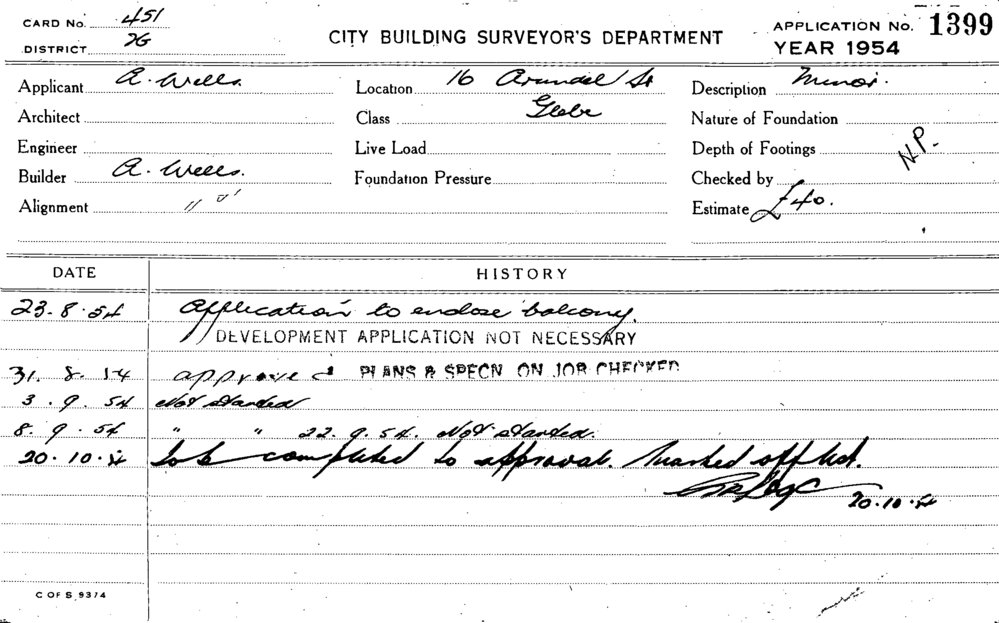 CARD No. 451
DISTRICT 2G
CITY BUILDING SURVEYOR'S DEPARTMENT
APPLICATION No. 1399
YEAR 1954
Applicant A. Wells.
Location 16 Arundel St
Description Minor.
Architect
Class Glebe
Nature of Foundation
Engineer
Live Load
Depth of Footings N.P.
Builder A. Wells.
Foundation Pressure
Checked by
Alignment " "
Estimate £40.
DATE HISTORY
23.8.54 Application to enclose balcony.
DEVELOPMENT APPLICATION NOT NECESSARY
31.8.54 approved PLANS & SPECN ON JOB CHECKED
3.9.54 Not started
8.9.54 " " 22.9.54. Not started.
20.10.54 Job completed to approval. Marked off list.
20.10.54
C OF S 9374